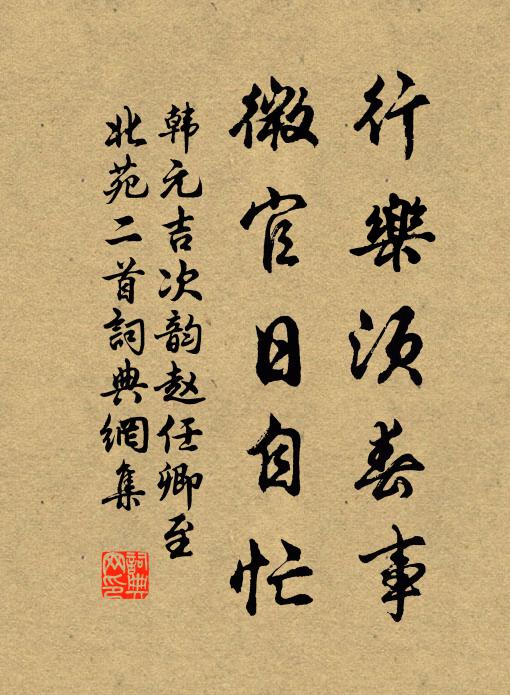 行樂須春事
微官日自忙
韩元吉次韵赵任卿至
北苑二首詞典網集
詞典网印